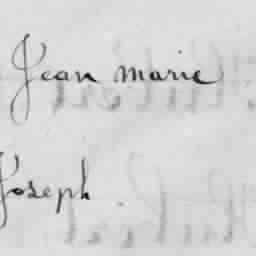 Jean marie
Joseph